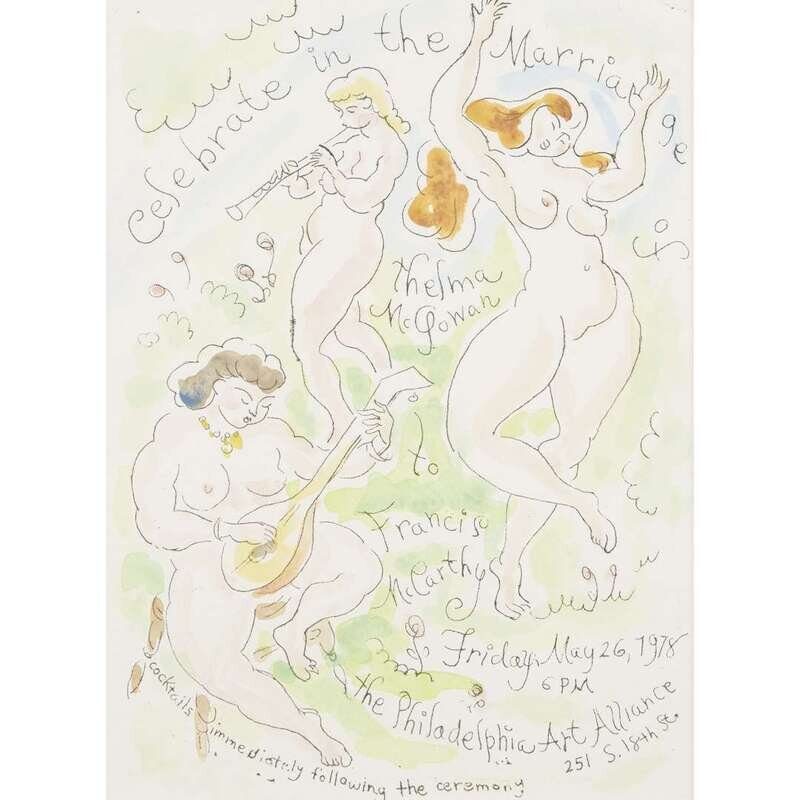 Celebrate in the Marriage of
Thelma
McGowan
to
Francis
McCarthy
Friday, May 26, 1978
6 PM
the Philadelphia Art Alliance
251 S. 18th St.
cocktails immediately following the ceremony